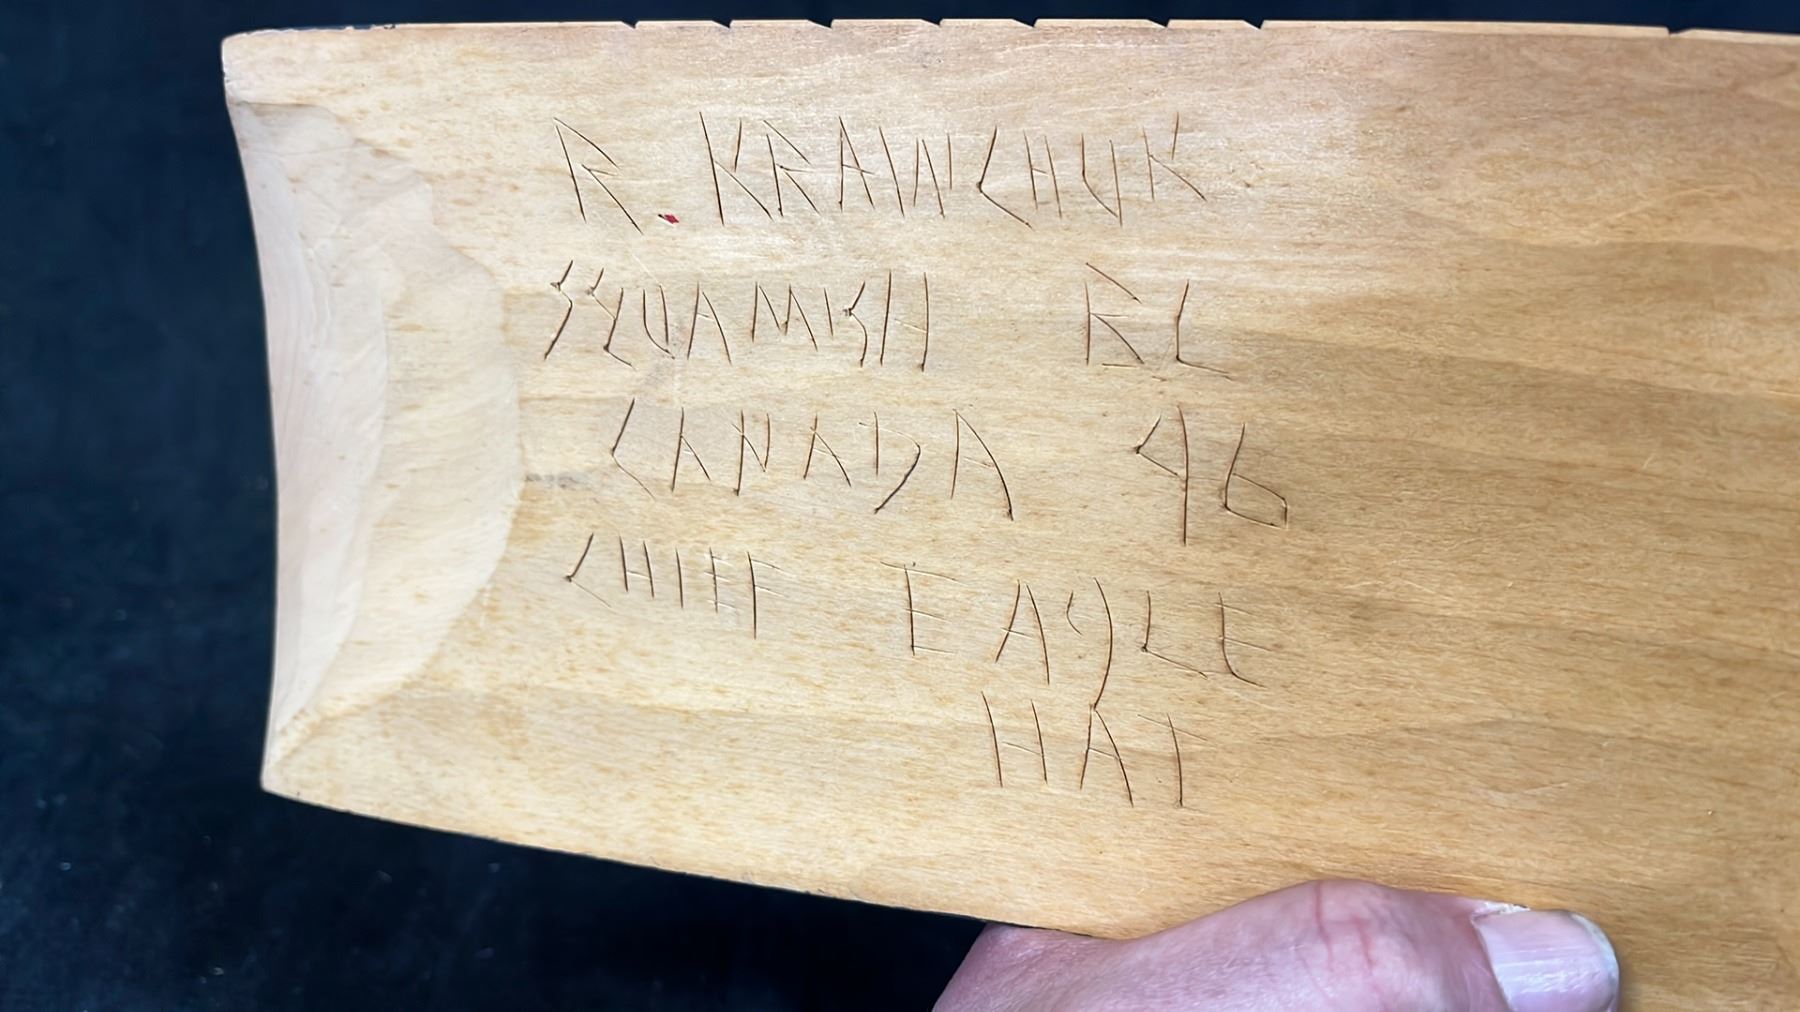 R. KRAWCHUK
SQUAMISH BC
CANADA 96
CHIEF EAGLE
HAT